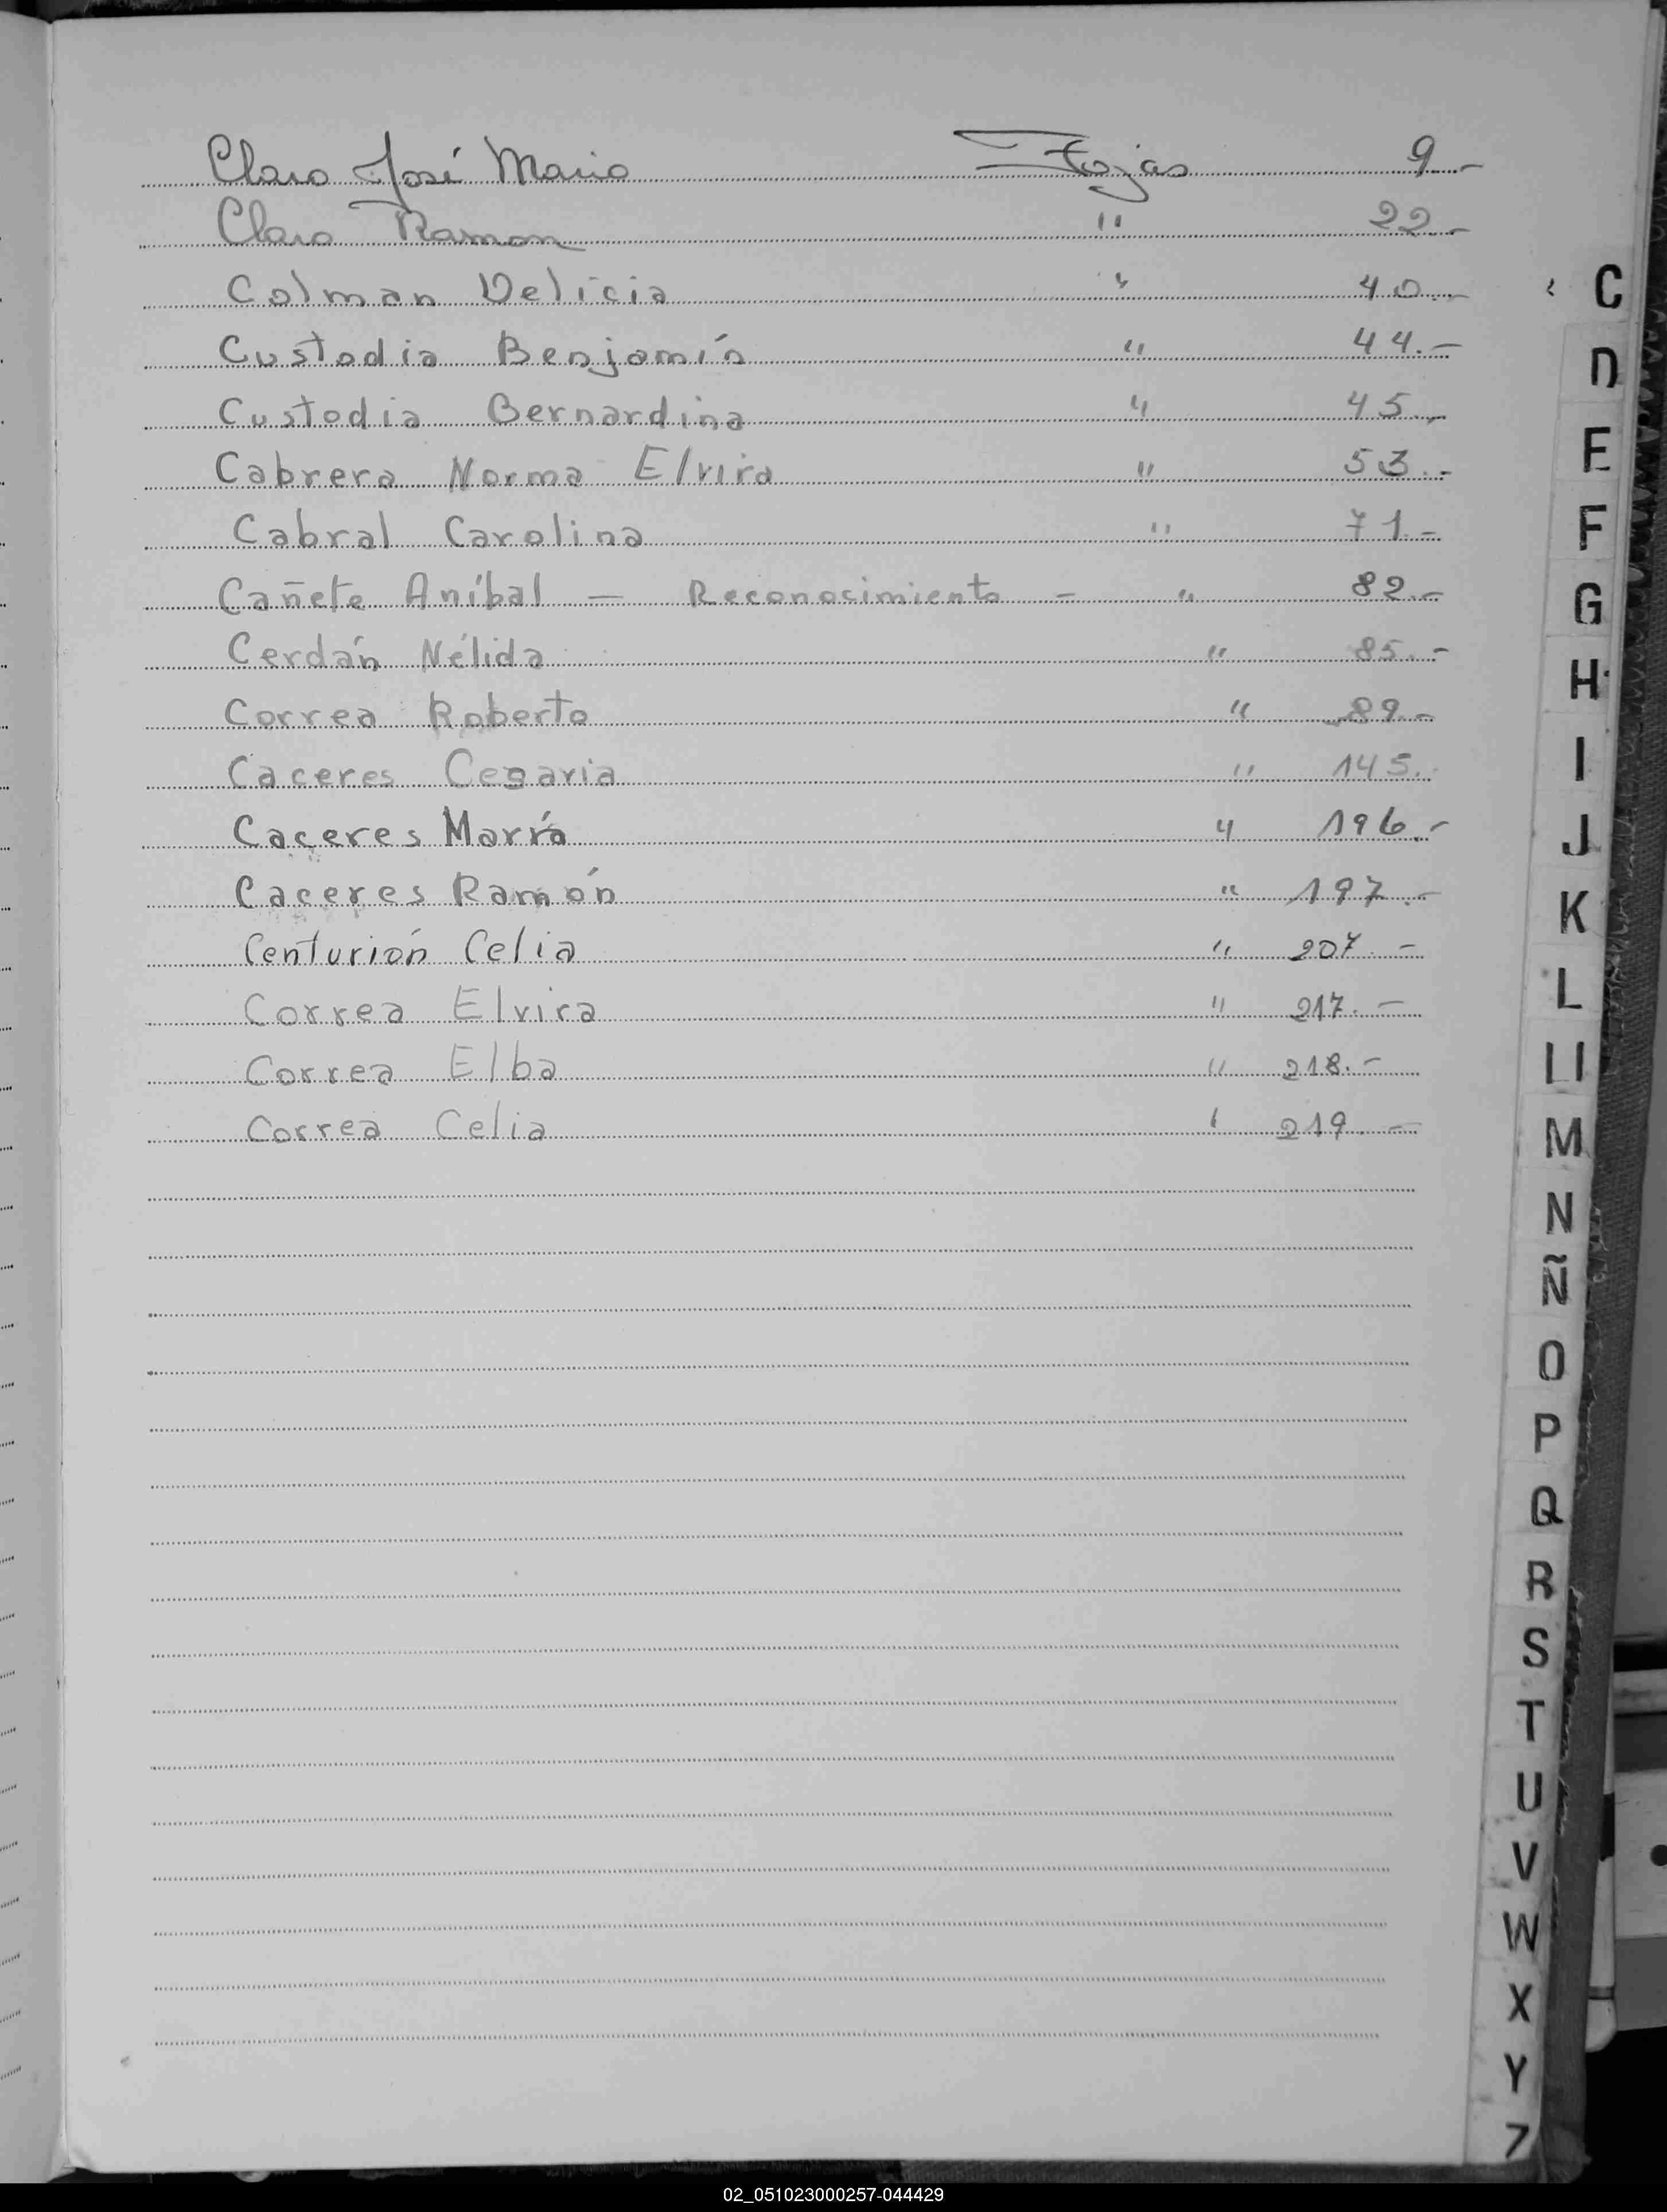 Claro José Mario Fojas 9.-
Claro Ramon " 22.-
Colman Delicia " 40.-
Custodia Benjamín " 44.-
Custodia Bernardina " 45.-
Cabrera Norma Elvira " 53.-
Cabral Carolina " 71.-
Cañete Aníbal — Reconocimiento - " 82.-
Cerdán Nélida " 85.-
Correa Roberto " 89.-
Caceres Cegaria " 145.
Caceres María " 196.-
Caceres Ramón " 197.-
Centurión Celia " 207.-
Correa Elvira " 217.-
Correa Elba " 218.-
Correa Celia " 219.-
C
D
E
F
G
H
I
J
K
L
Ll
M
N
Ñ
O
P
Q
R
S
T
U
V
W
X
Y
Z
02_051023000257-044429